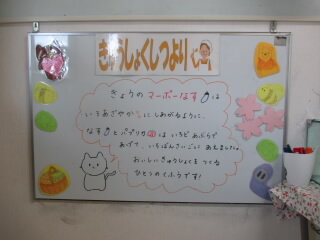 きゅうしょくしつより
きょうの マーボーなす は
いろあざやか に しあがるように、
なす と パプリカ は いちど あぶらで
あげて、いちばんさいごに あえました。
おいしい きゅうしょくを つくる
ひとつの くふうです!